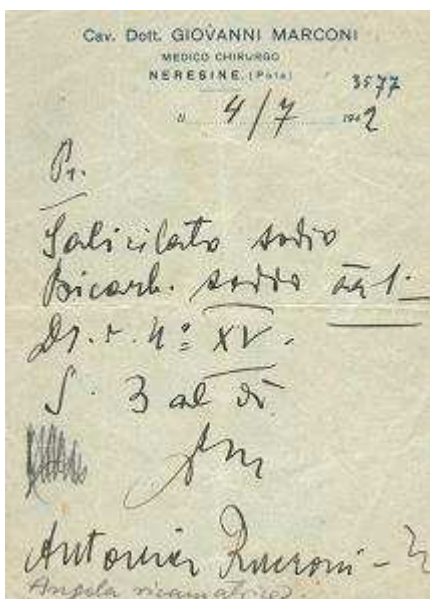 Cav. Dott. GIOVANNI MARCONI
MEDICO CHIRURGO
NERESINE. (Pola)
3577
4/7 1942
Pr.
Salicilato sodio
Bicarb. sodio āā 1.-
Ds. t. Nº XV.
S. 3 al dì
Antonia
Angela ricamatrice